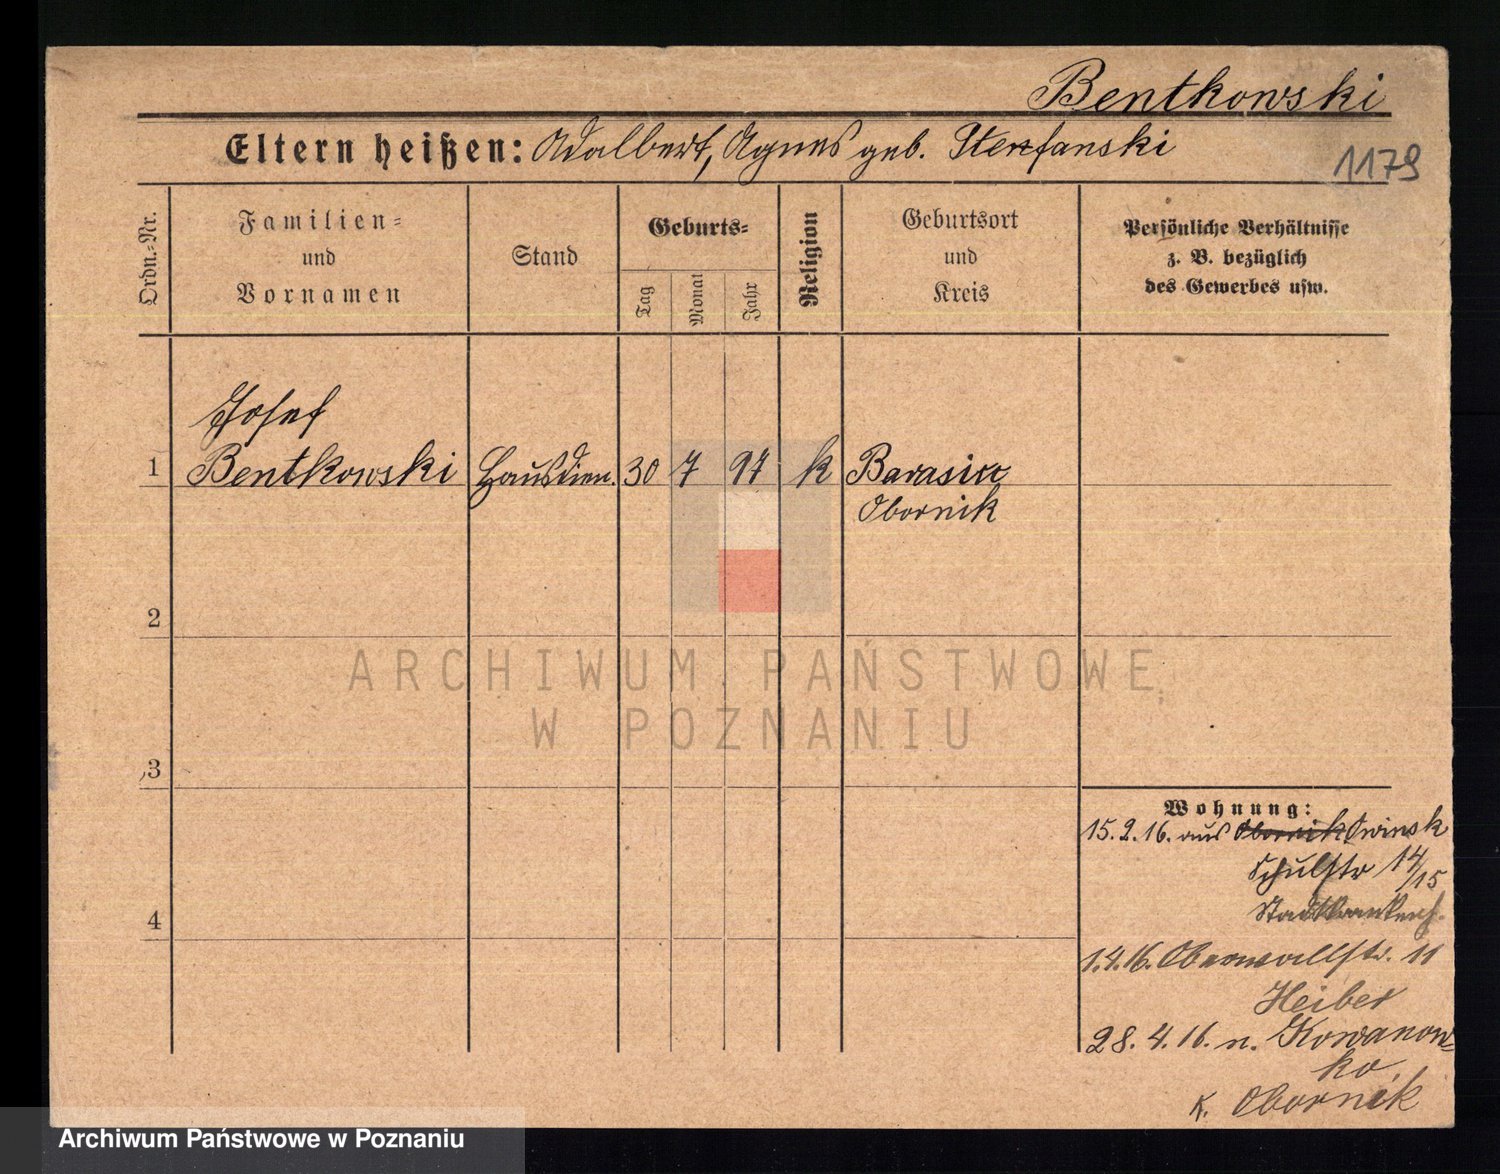 Bentkowski
Eltern heißen: Adalbert, Agnes geb. Sterfanski
1179
Ordn.-Nr.
Familien-
und
Vornamen
Stand
Geburts-
Tag
Monat
Jahr
Religion
Geburtsort
und
Kreis
Persönliche Verhältnisse
z. B. bezüglich
des Gewerbes usw.
Josef
1 Bentkowski Hausdien. 30 7 97 k
Obornik
2
3
4
Wohnung:
15.2.16. aus Obornik Owinsk
Schulstr 14/15
Stadtkrankenh.
1.4.16. Oberwallstr. 11
Heiber
28.4.16. n. Kowanow-
ko,
K. Obornik
ARCHIWUM PAŃSTWOWE
W POZNANIU
Archiwum Państwowe w Poznaniu